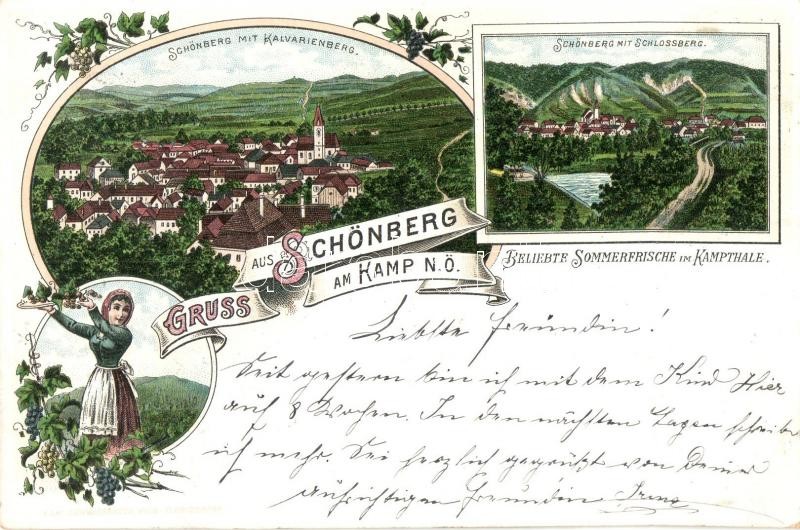 SCHÖNBERG MIT KALVARIENBERG.
SCHÖNBERG MIT SCHLOSSBERG.
GRUSS
AUS SCHÖNBERG
AM KAMP N.Ö.
BELIEBTE SOMMERFRISCHE IM KAMPTHALE.
Liebste Freundin!
Seit gestern bin ich mit dem Kind Hier
auf 8 Wochen. In den nächsten Tagen schreibe
ich mehr. Sei herzlich gegrüßt von Deiner
aufrichtigen Freundin Irene